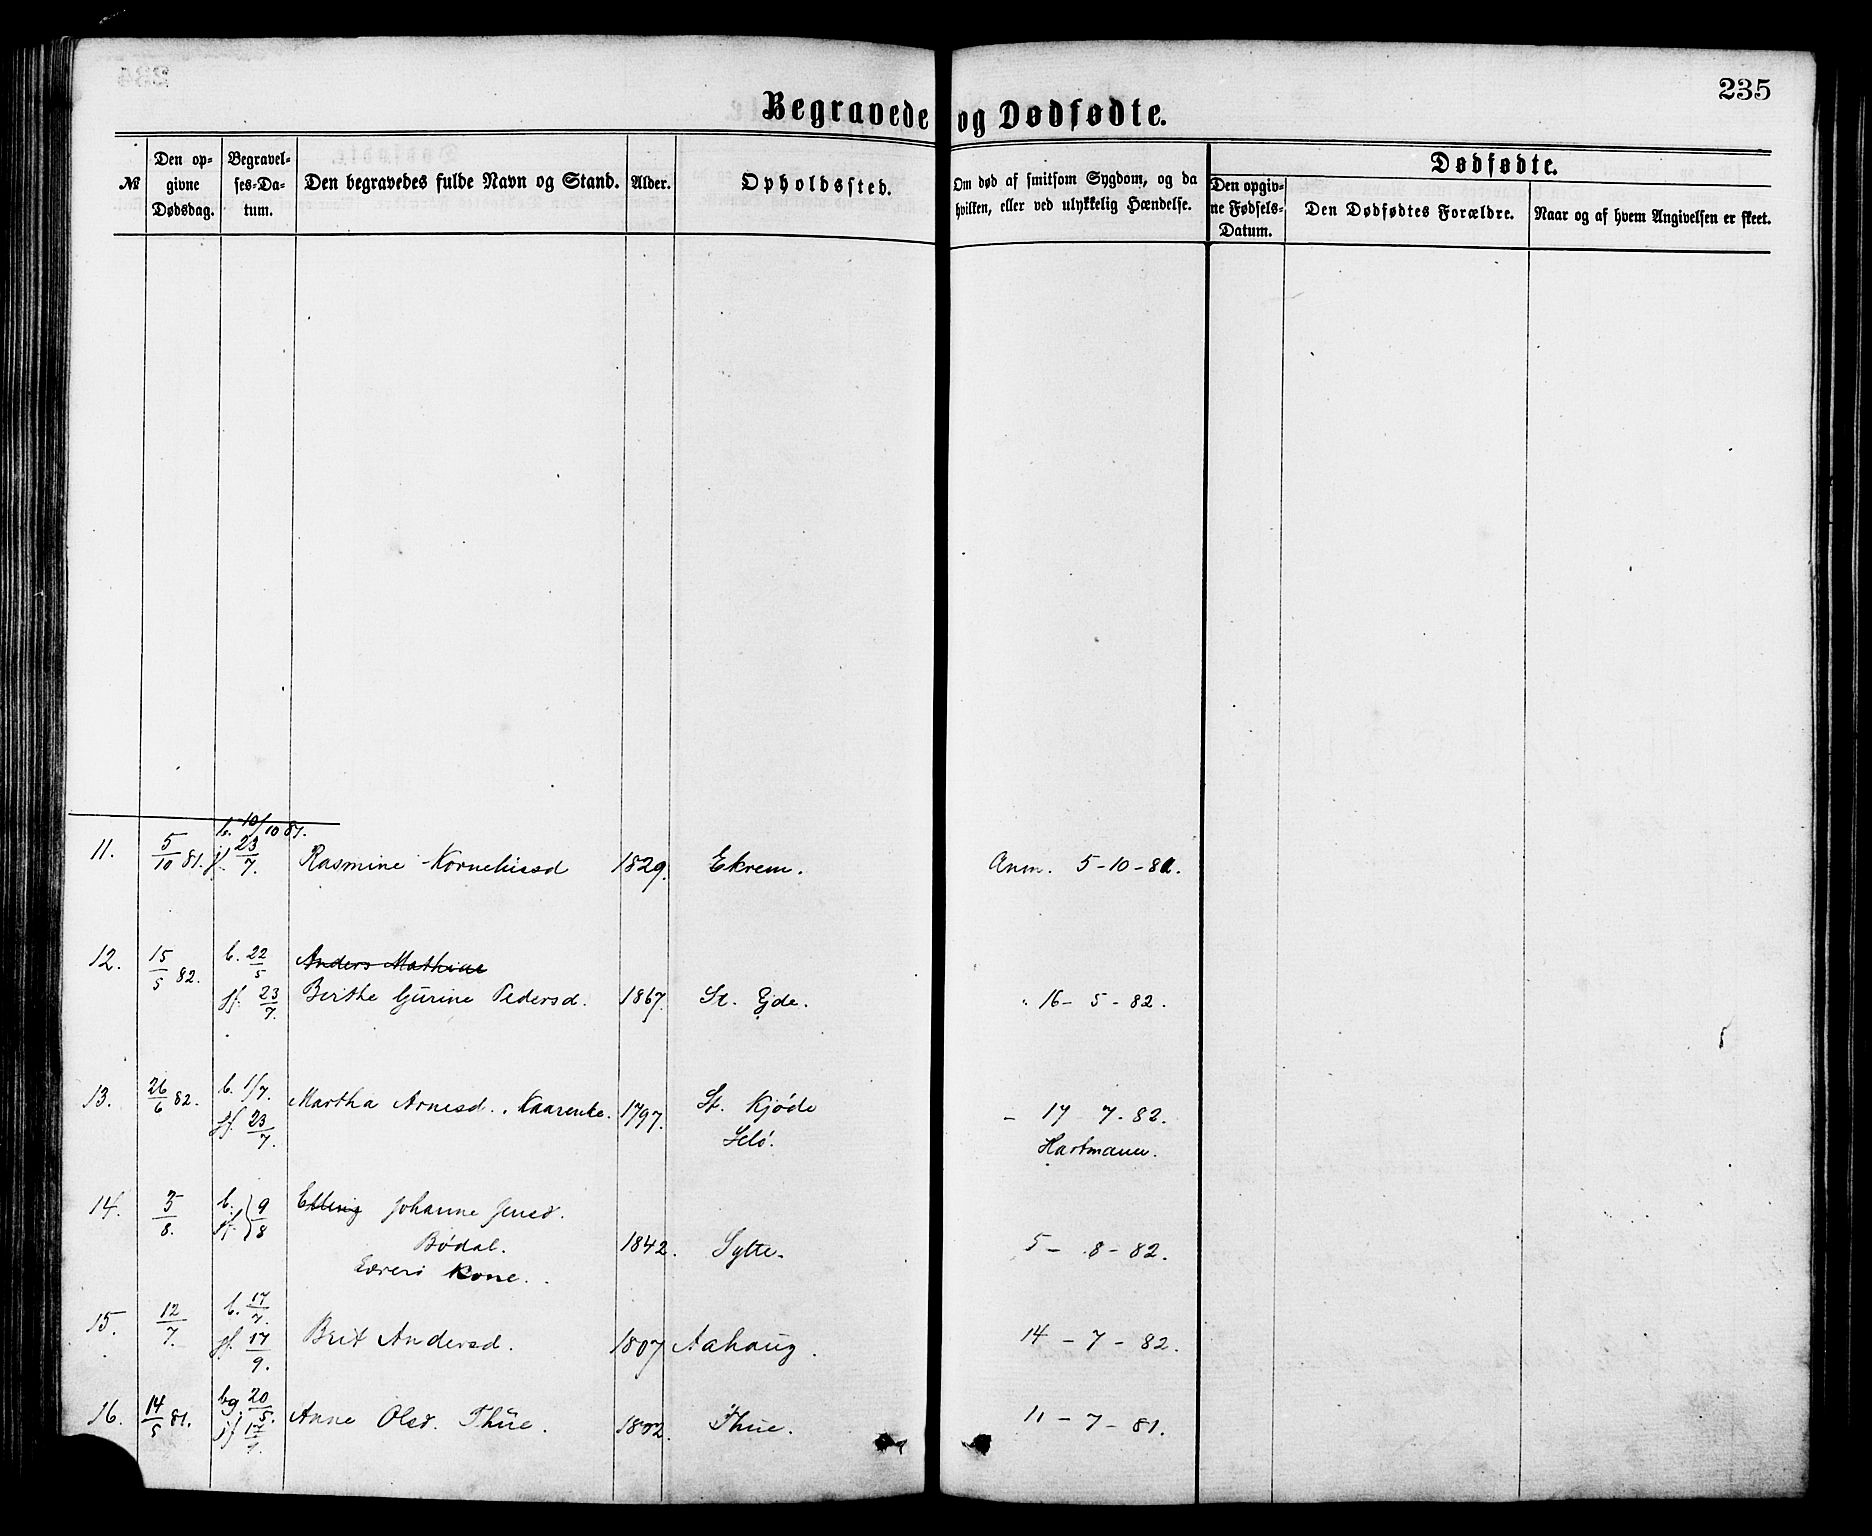 235
Begravede og Dødfødte.
№
Den opgivne Dødsdag.
Begravelses-Datum.
Den begravedes fulde Navn og Stand.
Alder.
Opholdssted.
Om død af smitsom Sygdom, og da hvilken, eller ved ulykkelig Hændelse.
Dødfødte.
Den opgivne Fødsels-Datum.
Den Dødfødtes Forældre.
Naar og af hvem Angivelsen er skeet.
b. 10/10 81.
11. 5/10 81. jf. 23/7. Rasmine Korneliusd 1829. Ekrem. Anm. 5-10-81.
12. 15/5 82. b. 22/5 Anders Mathias
jf. 23/7. Berthe Gurine Pedersd. 1867. St. Eide. " 16- 5 - 82.
13. 26/6 82. b. 1/7. Martha Arnesd. 1797. St. Kjøde – 17 7. 82.
jf. 23/7. Hartmann.
14. 5/8. b. jf. } 9/8 Elling Johanne Jensd.
Bødal. 1842. Sylte. 5 – 8 – 82.
Kone.
15. 12/7. b. 17/7. jf. 17/9. Brit Andersd. 1807 Aahaug. 14 – 7 – 82.
16. 14/5 81. bg. 20/5. jf 17/7. Anne Olsd. Thue. 1802. Thue. 11 – 7 – 81.